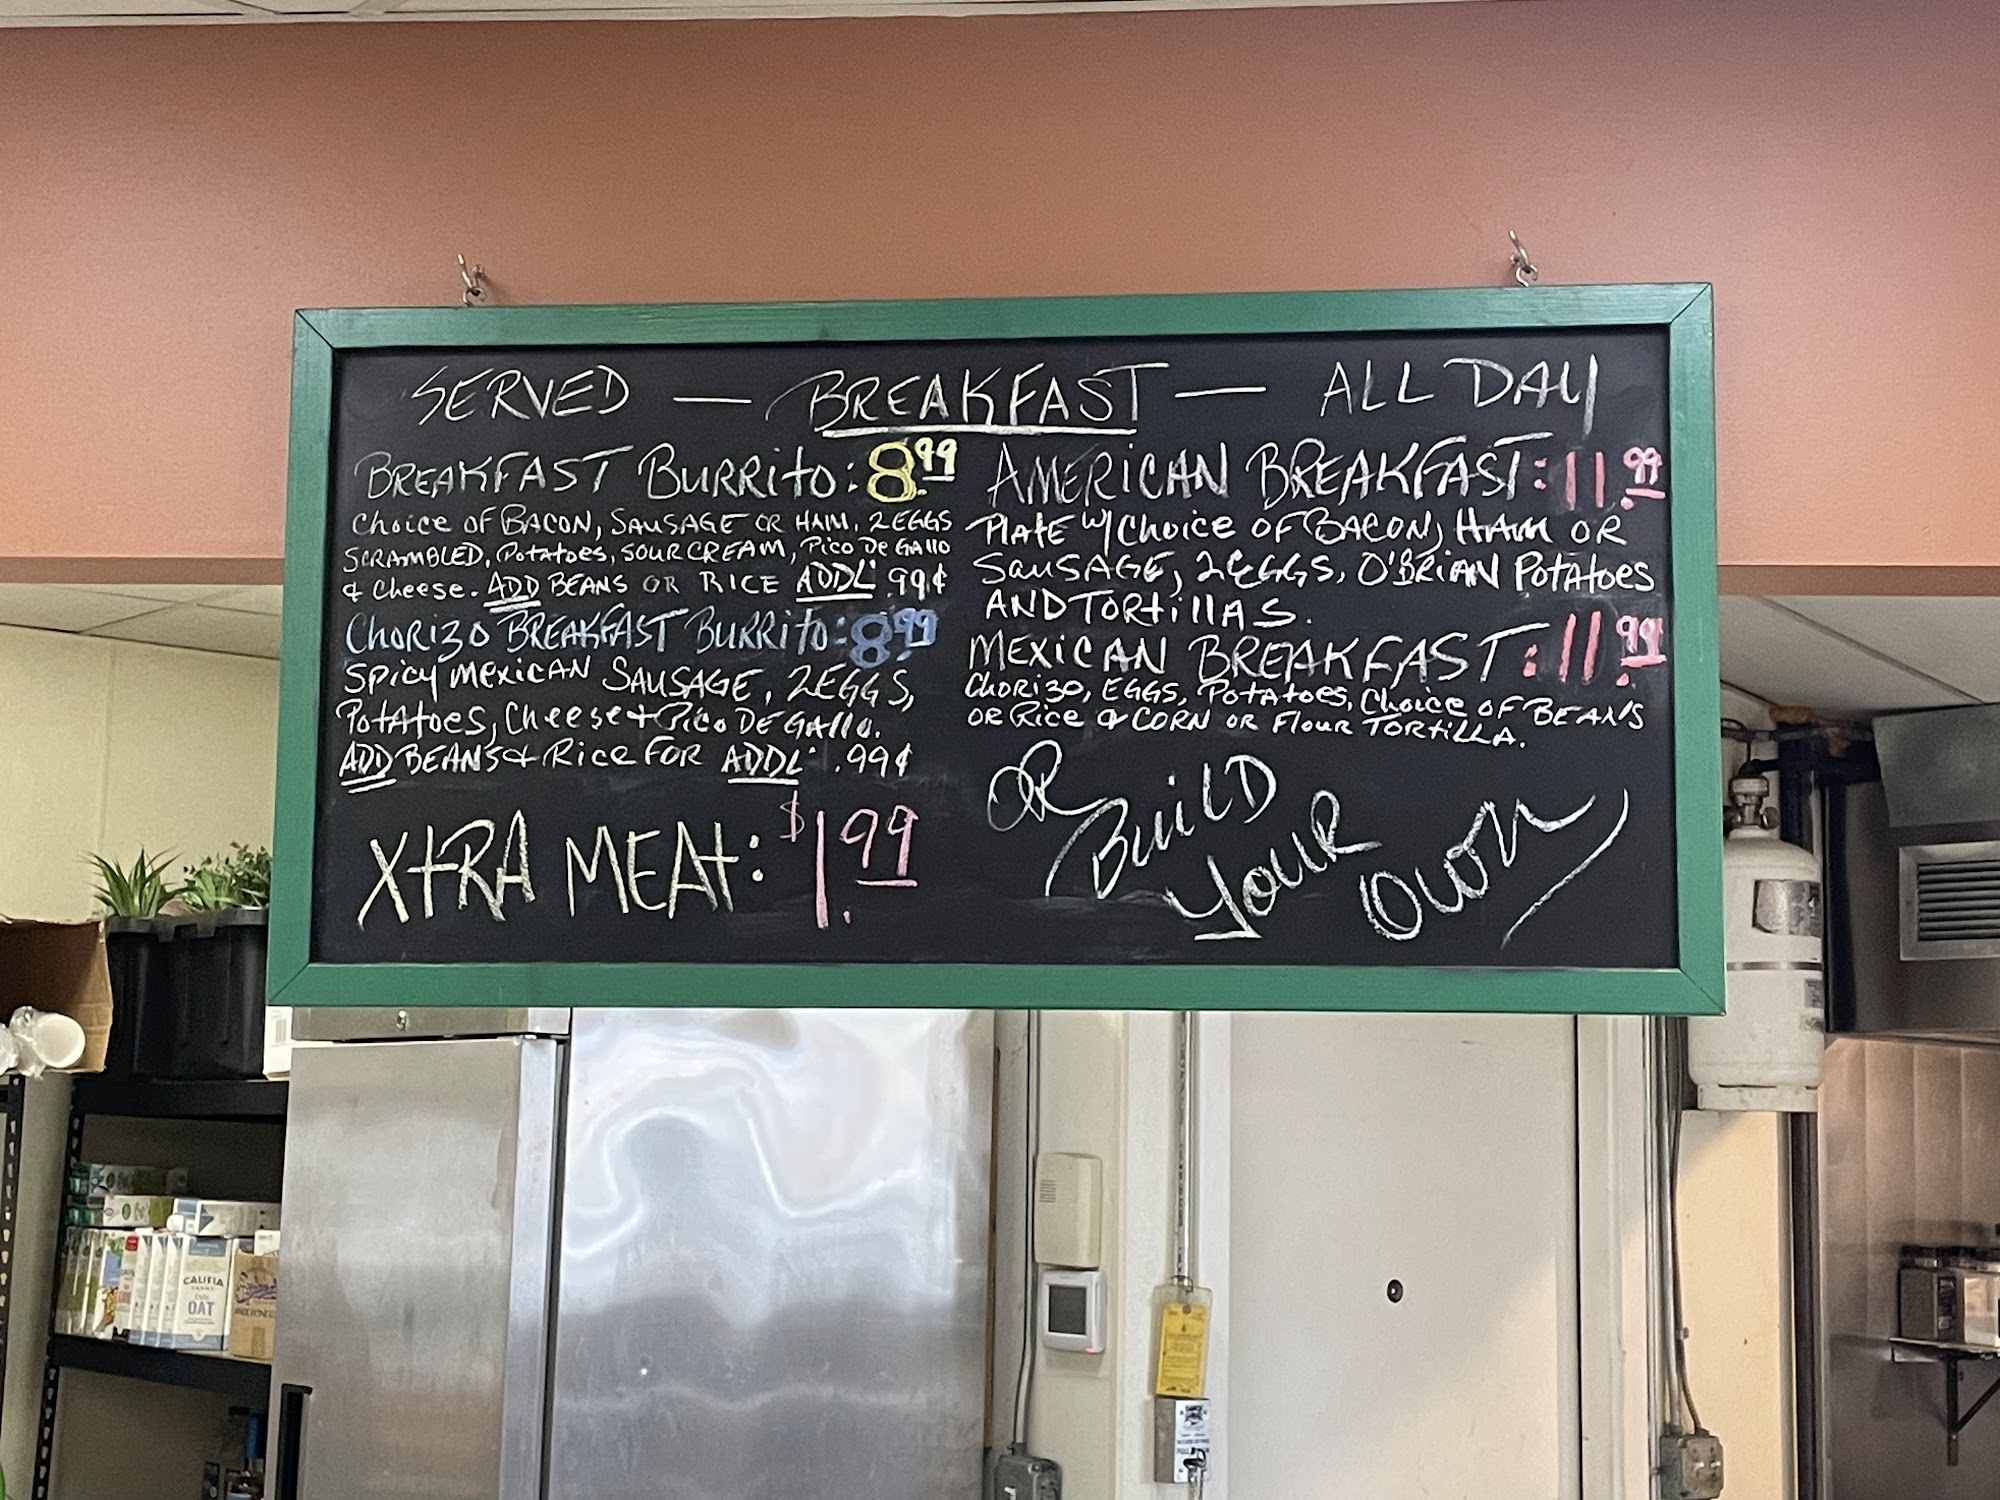 SERVED — BREAKFAST — ALL DAY
BREAKFAST BURRITO: 8.99
Choice OF BACON, SAUSAGE OR HAM, 2 EGGS
SCRAMBLED, Potatoes, SOUR CREAM, Pico De GAllo
& Cheese. ADD BEANS OR RICE ADDL .99¢
CHORIZO BREAKFAST BURRITO: 8.99
Spicy Mexican SAUSAGE, 2 EGGS,
Potatoes, Cheese + Pico DE GAllo.
ADD BEANS & Rice FOR ADDL .99¢
XtRA MEAt: $1.99
AMERICAN BREAKFAST: 11.99
PlAtE W/ Choice OF BACON, HAM OR
SAUSAGE, 2 EGGS, O'BRIAN POtAtoes
AND TORtillAS.
MEXICAN BREAKFAST: 11.99
CHORIZO, EGGS, POtAtoes, Choice OF BEANS
OR Rice & CORN OR Flour TORtiLLA.
OR Build
YOUR
OWN
CALIFIA
FARMS
OAT